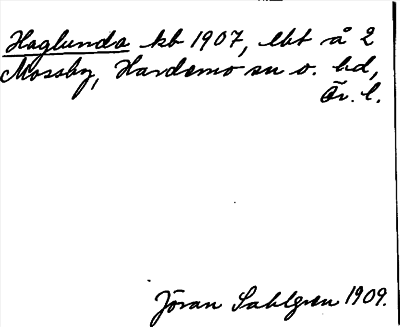 Haglunda kb 1907, ebt å 2
Mossby, Hardemo sn o. hd,
Ör. l.
Jöran Sahlgren 1909.